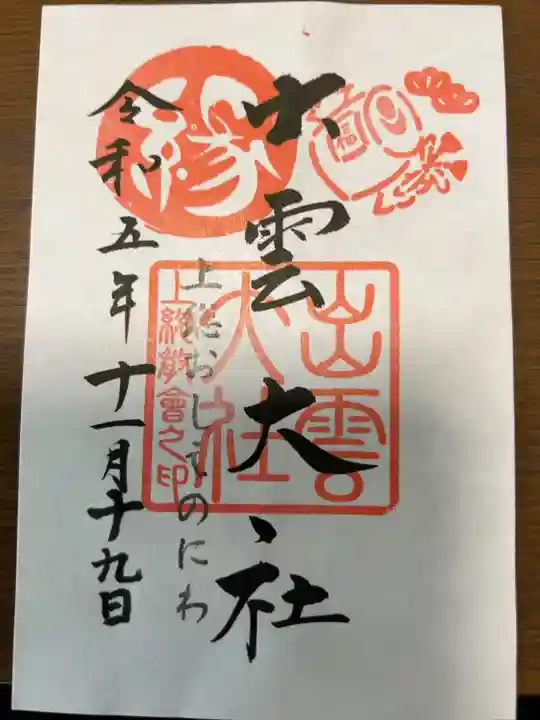 出雲大社
上総おしものにわ
令和五年十一月十九日
縁
福
出雲
大社
上総教會之印